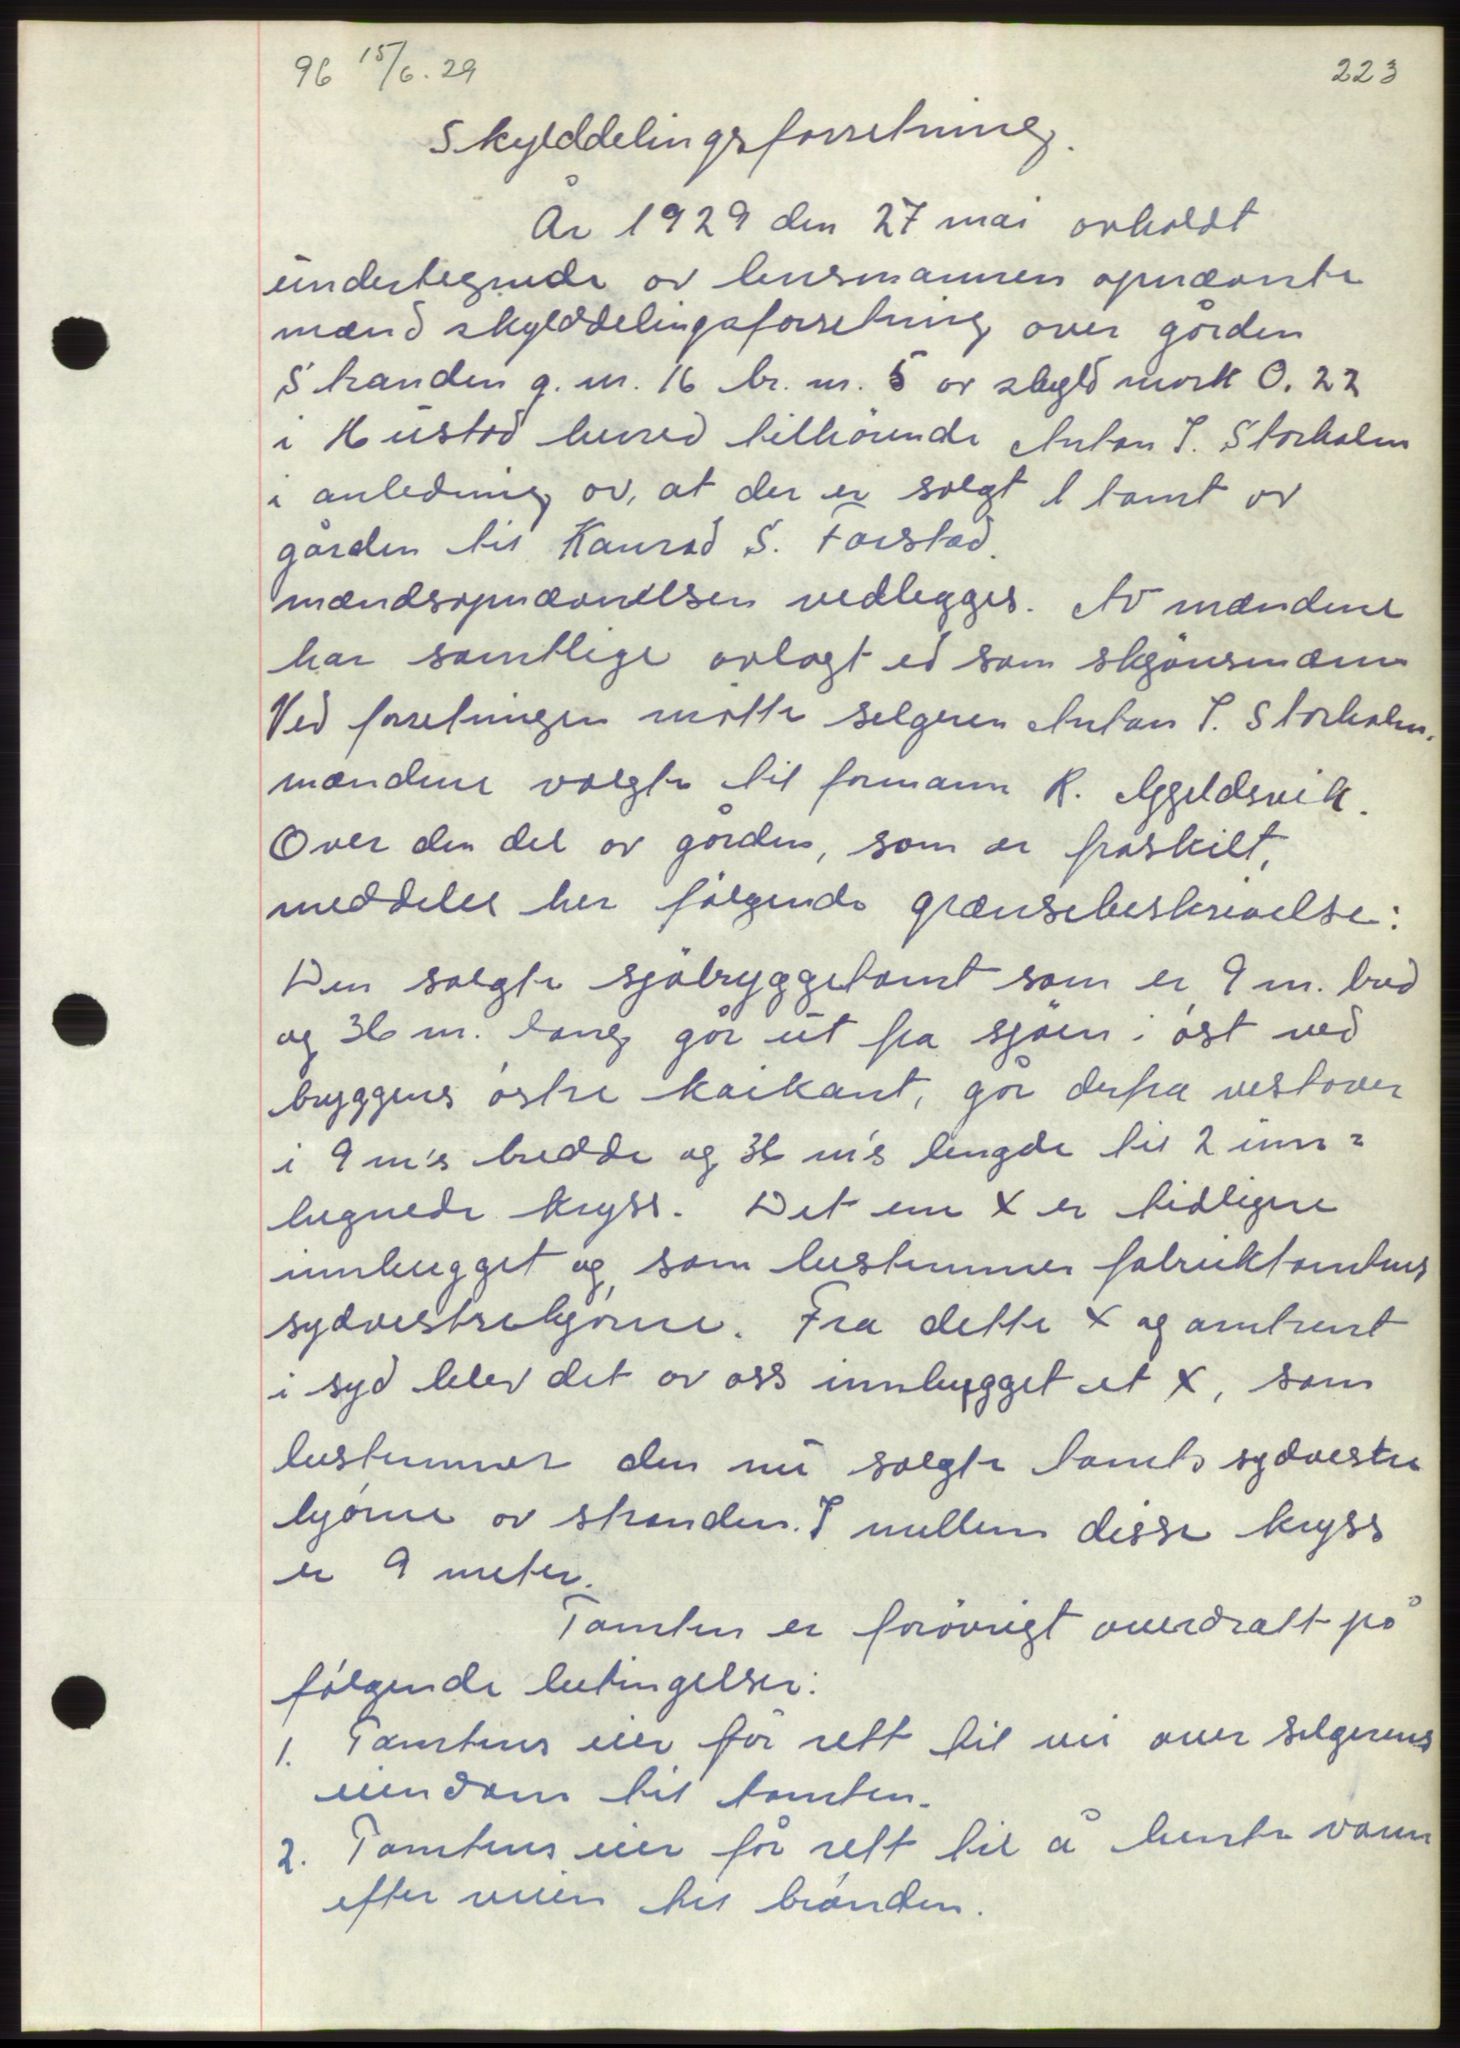 96 15/6. 29
223
Skylddelingsforretning.
År 1929 den 27 mai avholdt
undertegnede av lensmannen opnævnte
mænd skylddelingsforretning over gården
Stranden g. nr. 16 br. nr. 5 av skyld mark 0.22
i Hustad herred tilhørende Anton I. Storholm
i anledning av, at der er solgt 1 tomt av
gården til Konrad S. Farstad.
mændsopnævnelsen vedlegges. Av mændene
har samtlige avlagt ed som skjønsmænn
Ved forretningen møtte selgeren Anton I. Storholm.
mændene valgte til formann K.
Over den del av gården, som er fraskilt,
meddeles her følgende grænsebeskrivelse:
Den solgte sjøbryggetomt som er 9 m. bred
og 36 m. lang går ut fra sjøen i øst ved
bryggens østre kaikant, går derfra vestover
i 9 m's bredde og 36 m's lengde til 2 inn=
hugnede kryss. Det ene X er tidligere
innhugget og som bestemmer fabriktomtens
sydvestrehjørne. Fra dette X og omtrent
i syd blev det av oss innhugget et X, som
bestemmer den nu solgte tomts sydvestre
hjørne av stranden. I mellem disse kryss
er 9 meter.
Tomten er forøvrigt overdratt på
følgende betingelser:
1. Tomtens eier får rett til vei over selgerens
eiendom til tomten.
2. Tomtens eier får rett til å hente vann
efter veien til brønden.